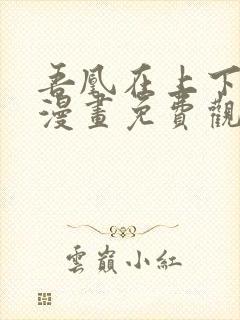 吾凰在上下
漫畫免費觀
雲巔小紅